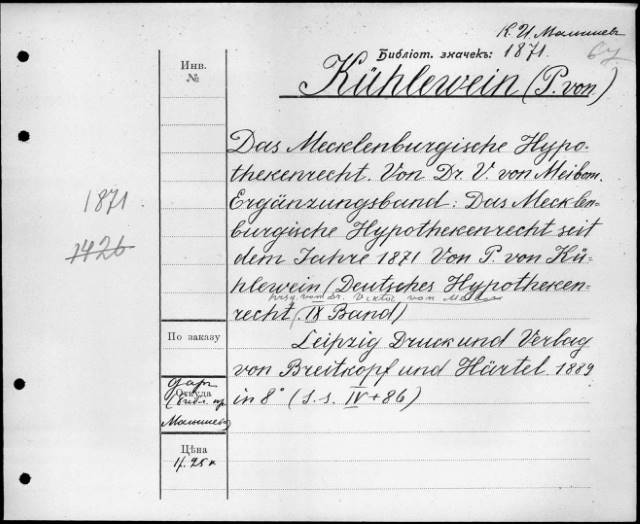 К. И. Малышев
Библіот. значекъ: 1871.
Инв.
№
Kühlewein (P. von)
Das Mecklenburgische Hypo-
thekenrecht. Von Dr. V. von Meibom.
Ergänzungsband: Das Mecklen-
burgische Hypothekenrecht seit
dem Jahre 1871 Von P. von Kü-
hlewein (Deutsches Hypotheken-
hrsg. von Dr. Viktor von Meibom
recht. IX Band)
1871
1426
По заказу
Leipzig Druck und Verlag
von Breitkopf und Härtel. 1889
in 8° (S.s. IV + 86)
Даръ
Откуда
Малышева
Цѣна
1 р. 25 к